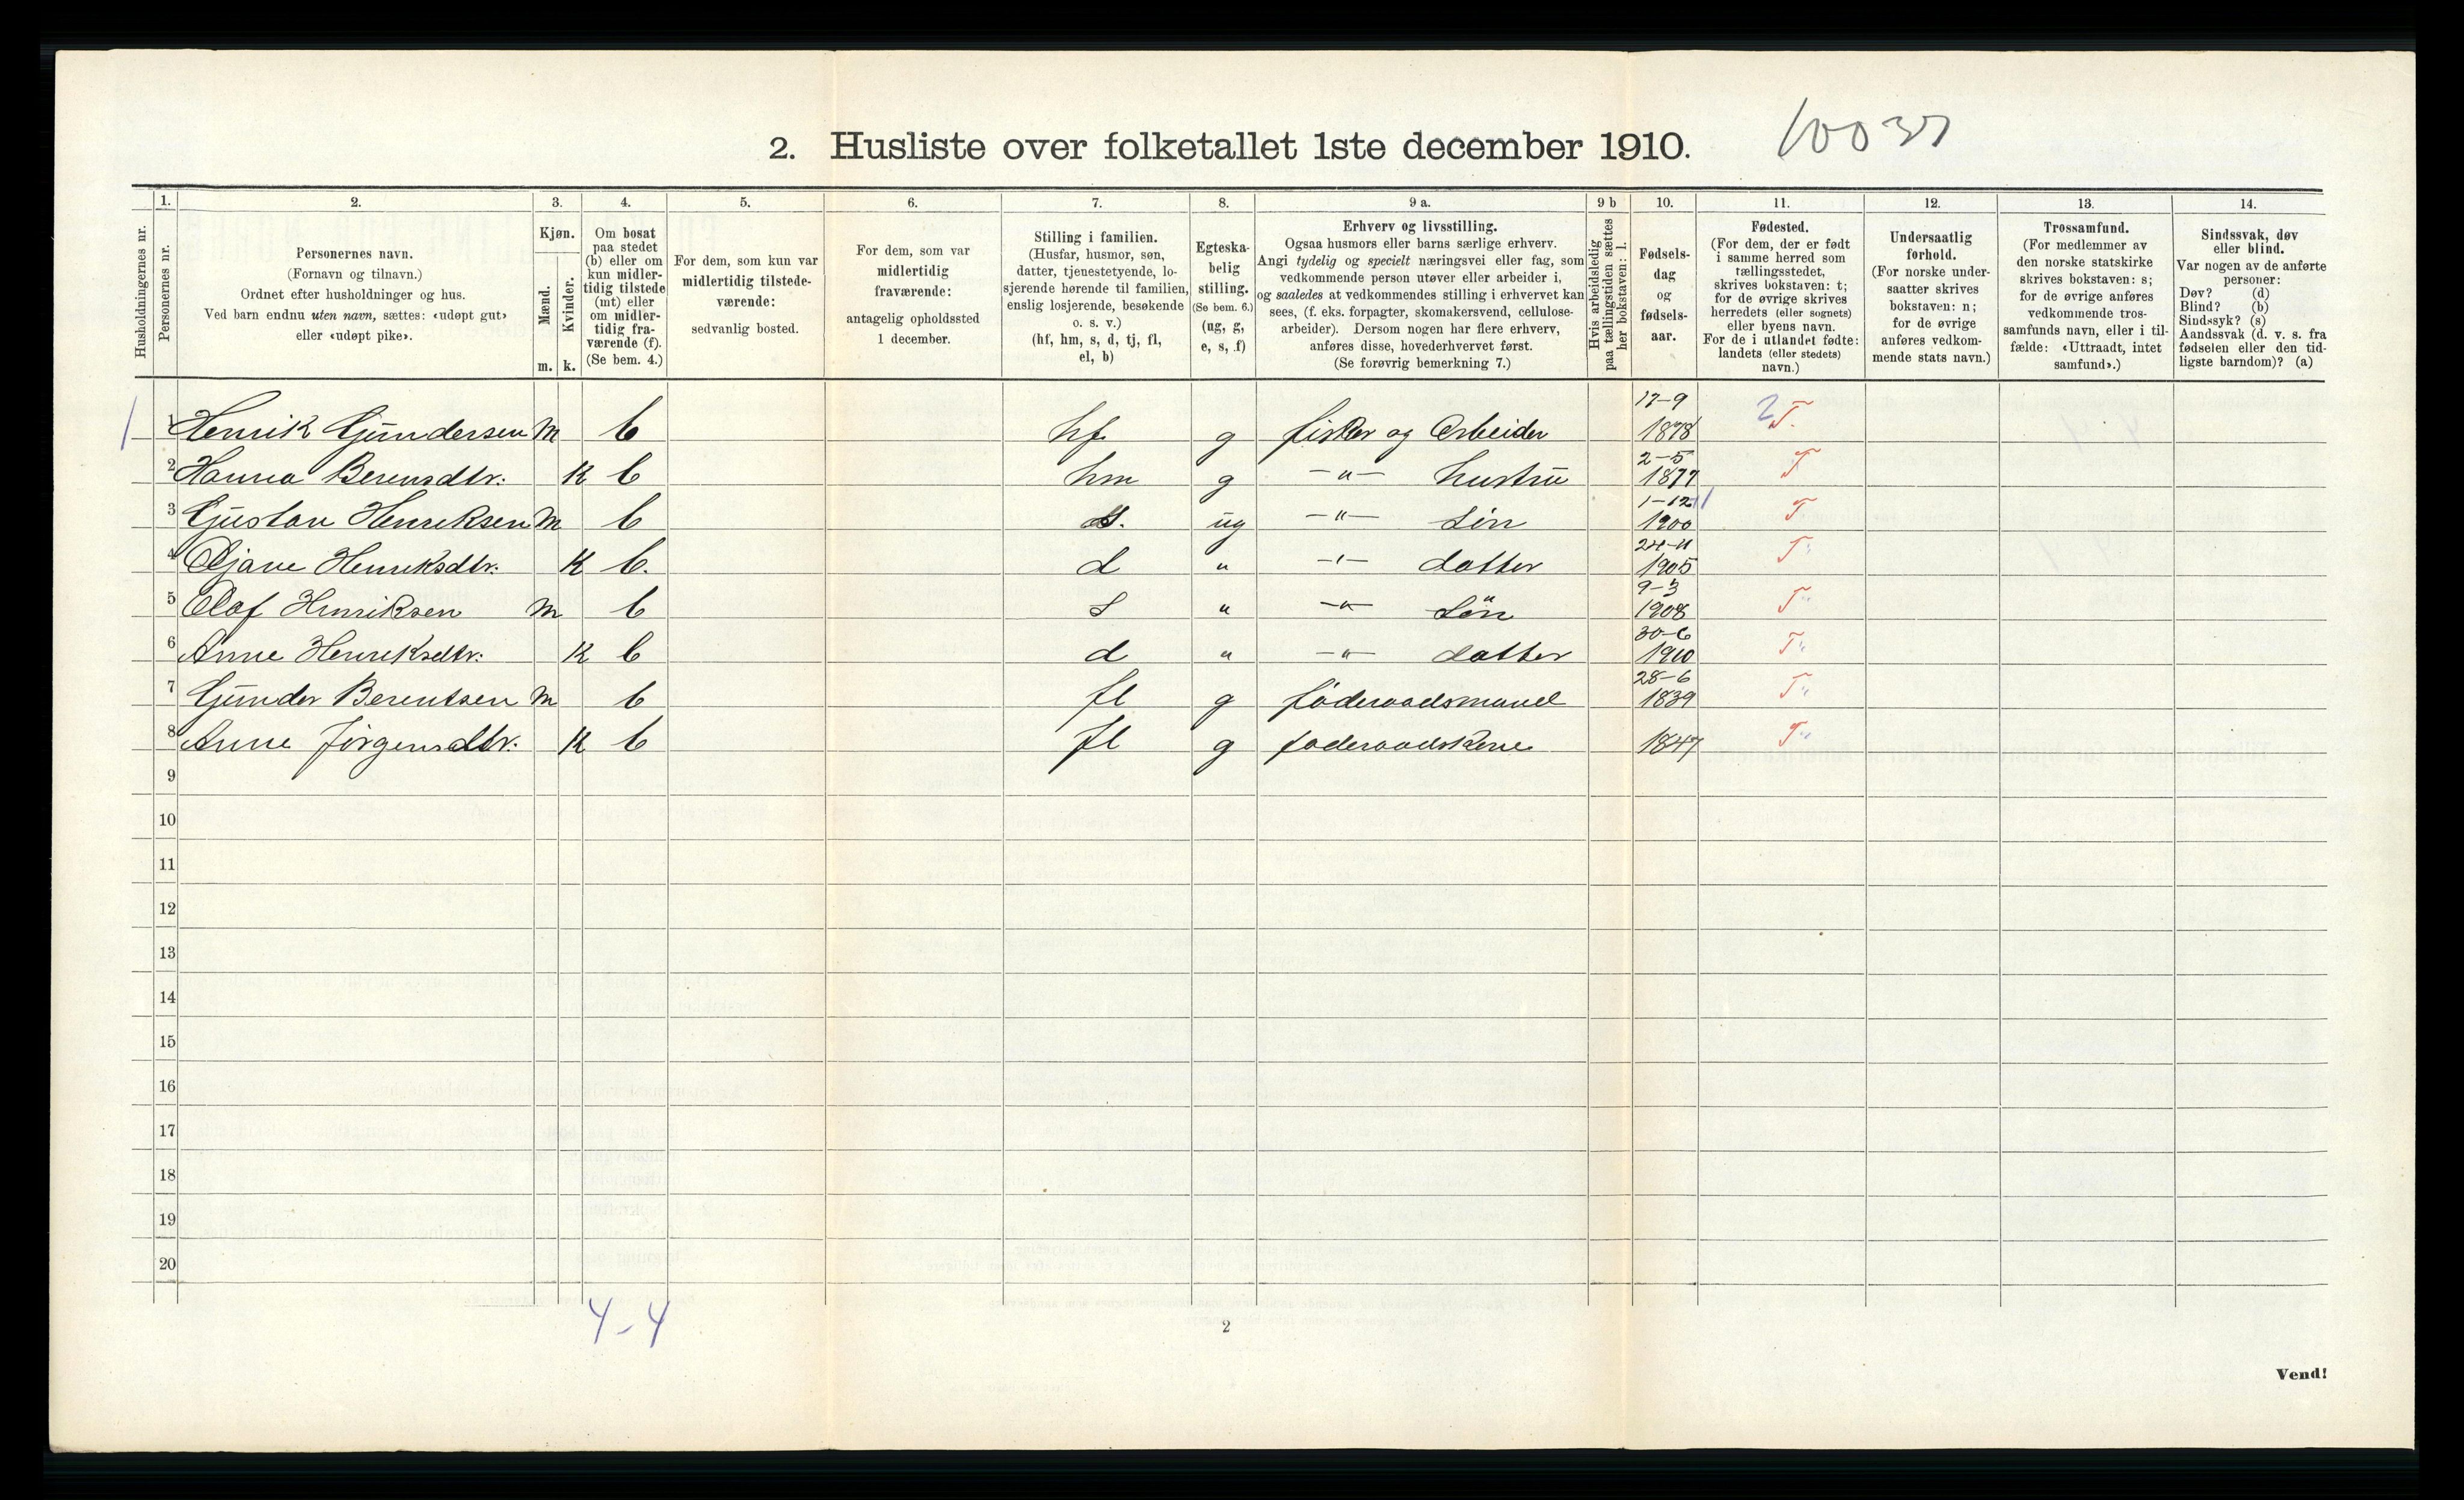 2. Husliste over folketallet 1ste december 1910.
Husholdningernes nr.
1.
Personernes nr.
2.
Personernes navn.
(Fornavn og tilnavn.)
Ordnet efter husholdninger og hus.
Ved barn endnu uten navn, sættes: «udøpt gut»
eller «udøpt pike».
3.
Kjøn.
Mænd.
Kvinder.
m. k.
4.
Om bosat
paa stedet
(b) eller om
kun midler-
tidig tilstede
(mt) eller
om midler-
tidig fra-
værende (f).
(Se bem. 4.)
5.
For dem, som kun var
midlertidig tilstede-
værende:
sedvanlig bosted.
6.
For dem, som var
midlertidig
fraværende:
antagelig opholdssted
1 december.
7.
Stilling i familien.
(Husfar, husmor, søn,
datter, tjenestetyende, lo-
sjerende hørende til familien,
enslig losjerende, besøkende
o. s. v.)
(hf, hm, s, d, tj, fl,
el, b)
8.
Egteska-
belig
stilling.
(Se bem. 6.)
(ug, g,
e, s, f)
9 a.
Erhverv og livsstilling.
Ogsaa husmors eller barns særlige erhverv.
Angi tydelig og specielt næringsvei eller fag, som
vedkommende person utøver eller arbeider i,
og saaledes at vedkommendes stilling i erhvervet kan
sees, (f. eks. forpagter, skomakersvend, cellulose-
arbeider). Dersom nogen har flere erhverv,
anføres disse, hovederhvervet først.
(Se forøvrig bemerkning 7.)
9 b
Hvis arbeidsledig
paa tællingstiden sættes
her bokstaven: l.
10.
Fødsels-
dag
og
fødsels-
aar.
11.
Fødested.
(For dem, der er født
i samme herred som
tællingsstedet,
skrives bokstaven: t;
for de øvrige skrives
herredets (eller sognets)
eller byens navn.
For de i utlandet fødte:
landets (eller stedets)
navn.)
12.
Undersaatlig
forhold.
(For norske under-
saatter skrives
bokstaven: n;
for de øvrige
anføres vedkom-
mende stats navn.)
13.
Trossamfund.
(For medlemmer av
den norske statskirke
skrives bokstaven: s;
for de øvrige anføres
vedkommende tros-
samfunds navn, eller i til-
fælde: «Uttraadt, intet
samfund».)
14.
Sindssvak, døv
eller blind.
Var nogen av de anførte
personer:
Døv? (d)
Blind? (b)
Sindssyk? (s)
Aandssvak (d. v. s. fra
fødselen eller den tid-
ligste barndom)? (a)
1 1 Henrik Gundersen m b hf g fisker og Arbeider 17-9 1878 2 T.
2 Hanna Berensdtr. k b hm g -"- hustru 2-5 1877 T
3 Gustav Henriksen m b s. ug -"- Søn 1-12 1900 T
4 Henriksdtr. k b. d " -"- datter 24-11 1905 T
5 Olaf Henriksen m b s " -"- Søn 9-3 1908 T
6 Anne Henriksdtr. k b d " -"- datter 30-6 1910 T
7 Gunder Berentsen m b fl g føderaadsmand 28-6 1839 T
8 Anne Jørgensdtr. k b fl g føderaadskone 1847 T
9
10
11
12
13
14
15
16
17
18
19
20
4-4
2
Vend!